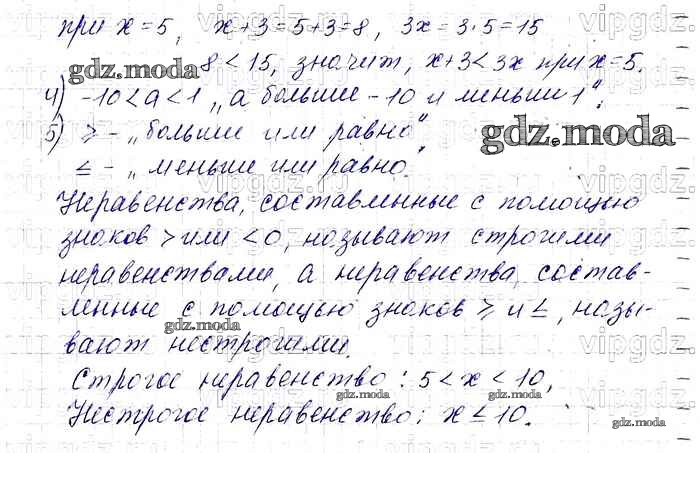 при x = 5, x+3=5+3=8, 3x=3·5=15
8 < 15, значит, x+3<3x при x=5.
gdz.moda
4) -10<a<1 „a больше -10 и меньши 1“.
5) ⩾ - „больше или равно“
gdz.moda
≤ - „меньше или равно.
Неравенства, составленные с помощью
знаков > или < 0, называют строгими
неравенствами, а неравенства, состав-
ленные с помощью знаков ⩾ и ≤, назы-
gdz.moda
вают нестрогими.
Строгое неравенство: 5 < x < 10,
gdz.moda gdz.moda
Нестрогое неравенство: x ≤ 10.
gdz.moda
vipgdz.ru